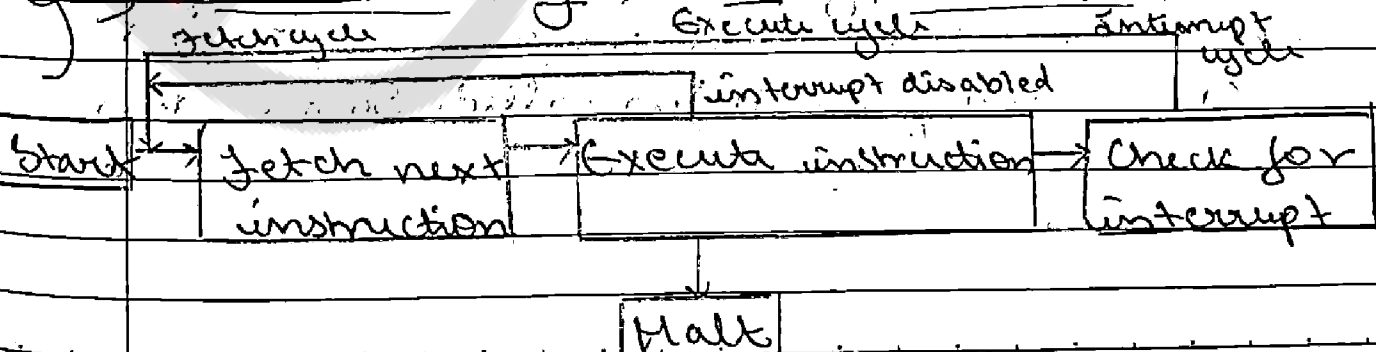 Fetch cycle Execute cycle interrupt
cycle
interrupt disabled
Start Fetch next Execute instruction Check for
instruction interrupt
Halt